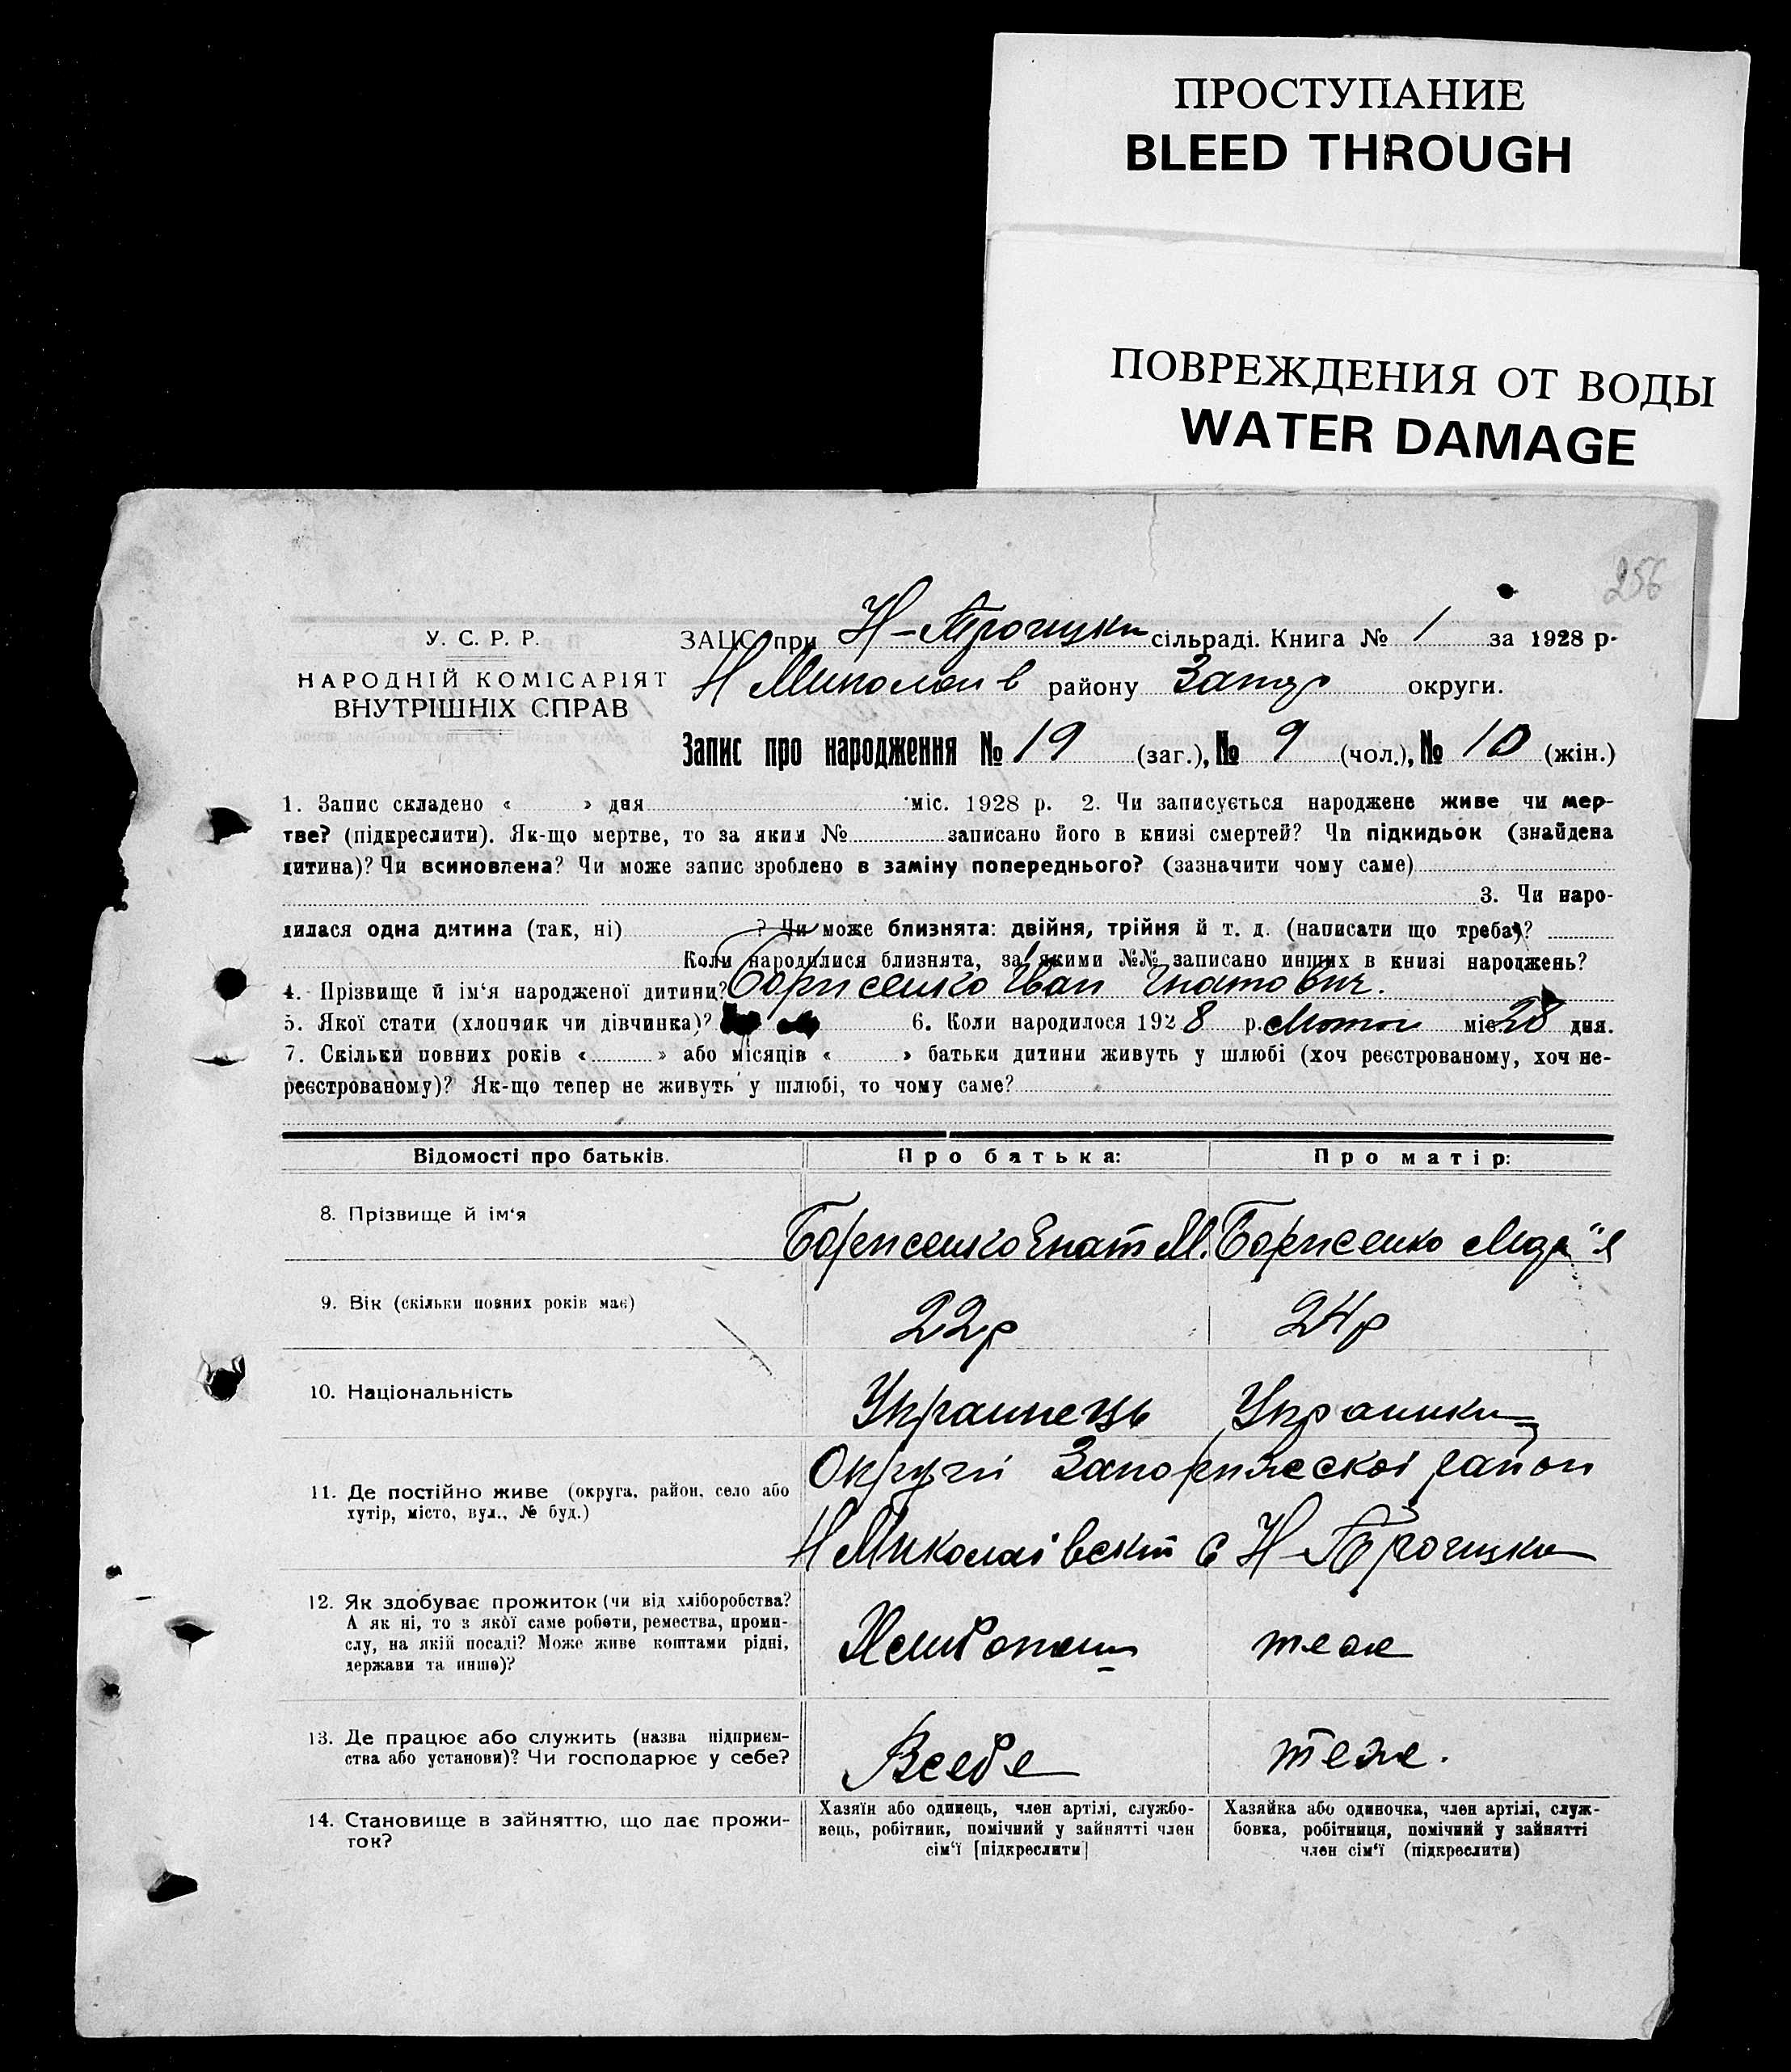 ПРОСТУПАНИЕ
BLEED THROUGH
ПОВРЕЖДЕНИЯ ОТ ВОДЫ
WATER DAMAGE
256
У. С. Р. Р.
НАРОДНІЙ КОМІСАРІЯТ
ВНУТРІШНІХ СПРАВ
ЗАЦС при сільраді. Книга № 1 за 1928 р.
району округи.
Запис про народження № 19 (заг.), № 9 (чол.), № 10 (жін.)
1. Запис складено « » дня міс. 1928 р. 2. Чи записується народжене живе чи мер-
тве? (підкреслити). Як-що мертве, то за яким № записано його в книзі смертей? Чи підкидьок (знайдена
дитина)? Чи всиновлена? Чи може запис зроблено в заміну попереднього? (зазначити чому саме)
3. Чи наро-
дилася одна дитина (так, ні) ? Чи може близнята: двійня, трійня й т. д. (написати що треба)?
Коли народилися близнята, за якими №№ записано инших в книзі народжень?
4. Прізвище й ім‘я народженої дитини? Борисенко Іван Гнатович.
5. Якої стати (хлопчик чи дівчинка)? 6. Коли народилося 1928 р. міс 28 дня.
7. Скільки повних років « » або місяців « » батьки дитини живуть у шлюбі (хоч реєстрованому, хоч не-
реєстрованому)? Як-що тепер не живуть у шлюбі, то чому саме?
Відомості про батьків.
Про батька:
Про матір:
8. Прізвище й ім‘я
Борисенко Гнат М.
Борисенко
9. Вік (скільки повних років має)
22р
24р
10. Національність
Украинець
Украинка
11. Де постійно живе (округа, район, село або
хутір, місто, вул., № буд.)
Округи район
Н Миколаівскій с
12. Як здобуває прожиток (чи від хліборобства?
А як ні, то з якої саме роботи, ремества, проми-
слу, на якій посаді? Може живе коштами рідні,
держави та инше)?
теж
13. Де працює або служить (назва підприєм-
ства або установи)? Чи господарює у себе?
Всебе
теж.
14. Становище в зайняттю, що дає прожи-
ток?
Хазяїн або одинець, член артілі, службо-
вець, робітник, помічний у зайнятті член
сім‘ї [підкреслити]
Хазяйка або одиночка, член артілі, служ-
бовка, робітниця, помічний у зайнятті
член сім‘ї (підкреслити)